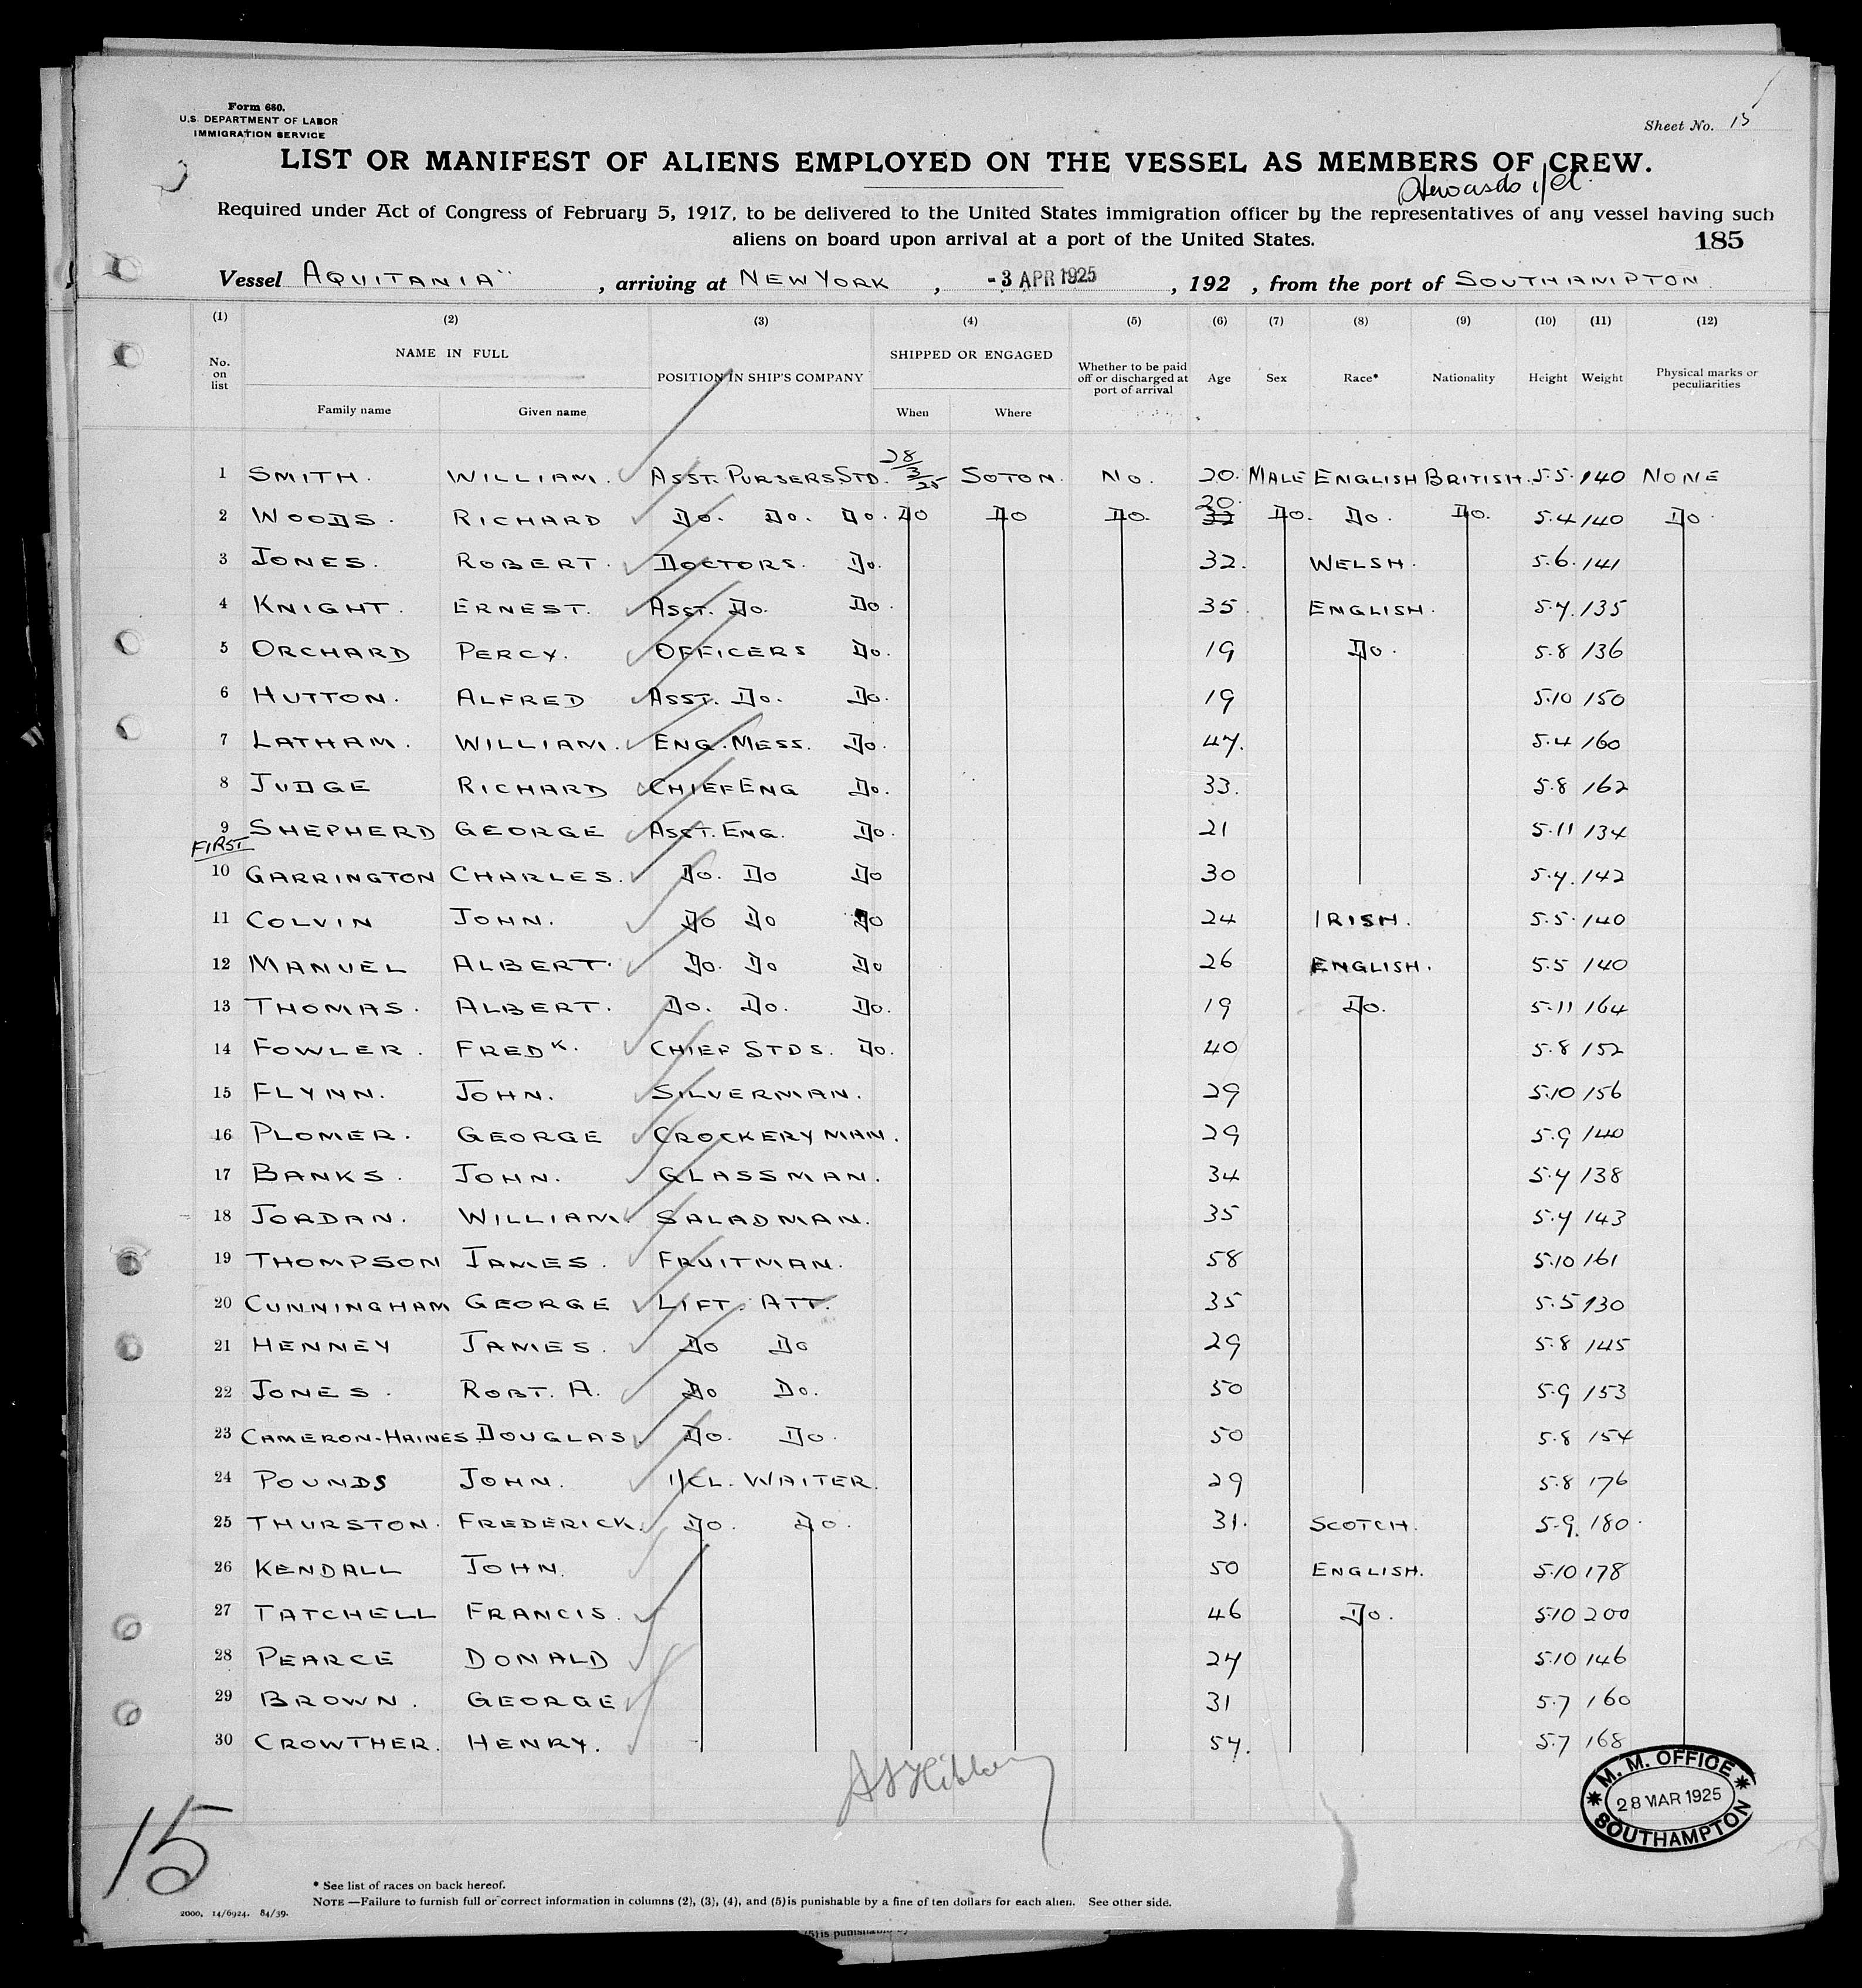 Form 680.
U.S. DEPARTMENT OF LABOR
IMMIGRATION SERVICE
Sheet No. 15
LIST OR MANIFEST OF ALIENS EMPLOYED ON THE VESSEL AS MEMBERS OF CREW.
Required under Act of Congress of February 5, 1917, to be delivered to the United States immigration officer by the representatives of any vessel having such
aliens on board upon arrival at a port of the United States.
185
Vessel AQUITANIA" , arriving at NEW YORK , - 3 APR 1925 , 192 , from the port of SOUTHAMPTON.
(1) (2) (3) (4) (5) (6) (7) (8) (9) (10) (11) (12)
No. on list NAME IN FULL Family name Given name POSITION IN SHIP'S COMPANY SHIPPED OR ENGAGED When Where Whether to be paid off or discharged at port of arrival Age Sex Race* Nationality Height Weight Physical marks or peculiarities
1 SMITH. WILLIAM. ASST. PURSERS STD. 28/3/25 SOTON. NO. 20. MALE ENGLISH BRITISH. 5.5. 140 NONE
2 WOODS. RICHARD DO. DO. DO. DO DO DO. 20. DO. DO. DO. 5.4 140 DO.
3 JONES. ROBERT. DOCTORS. DO. 32. WELSH. 5.6. 141
4 KNIGHT. ERNEST. ASST. DO. DO. 35. ENGLISH. 5.7. 135
5 ORCHARD PERCY. OFFICERS DO. 19 DO. 5.8 136
6 HUTTON. ALFRED ASST. DO. DO. 19 5.10 150
7 LATHAM. WILLIAM. ENG. MESS. DO. 47. 5.4 160
8 JUDGE RICHARD CHIEF ENG DO. 33. 5.8 162
9 SHEPHERD GEORGE ASST. ENG. DO. 21 5.11 134
FIRST
10 GARRINGTON CHARLES. DO. DO DO 30 5.7. 142
11 COLVIN JOHN. DO DO DO 24 IRISH. 5.5. 140
12 MANUEL ALBERT. DO. DO DO 26 ENGLISH. 5.5 140
13 THOMAS. ALBERT. DO. DO. DO. 19 DO. 5.11 164
14 FOWLER. FREDK. CHIEF STDS. DO. 40 5.8 152
15 FLYNN. JOHN. SILVERMAN. 29 5.10 156
16 PLOMER. GEORGE CROCKERY MAN. 29 5.9 140
17 BANKS. JOHN. GLASSMAN. 34 5.7 138
18 JORDAN. WILLIAM. SALADMAN. 35 5.7 143
19 THOMPSON JAMES. FRUITMAN. 58 5.10 161
20 CUNNINGHAM GEORGE LIFT. ATT. 35 5.5 130
21 HENNEY JAMES. DO DO 29 5.8 145
22 JONES. ROBT. A. DO DO. 50 5.9 153
23 CAMERON-HAINES DOUGLAS DO. DO. 50 5.8 154
24 POUNDS JOHN. 1/CL. WAITER. 29 5.8 176
25 THURSTON. FREDERICK. DO. DO. 31. SCOTCH. 5.9. 180.
26 KENDALL JOHN. 50 ENGLISH. 5.10 178
27 TATCHELL FRANCIS. 46 DO. 5.10 200
28 PEARCE DONALD 27 5.10 146
29 BROWN. GEORGE 31 5.7 160
30 CROWTHER. HENRY. 57. 5.7 168
M. M. OFFICE
28 MAR 1925
SOUTHAMPTON
15
* See list of races on back hereof.
NOTE —Failure to furnish full or correct information in columns (2), (3), (4), and (5) is punishable by a fine of ten dollars for each alien. See other side.
2000. 14/6924. 84/39.